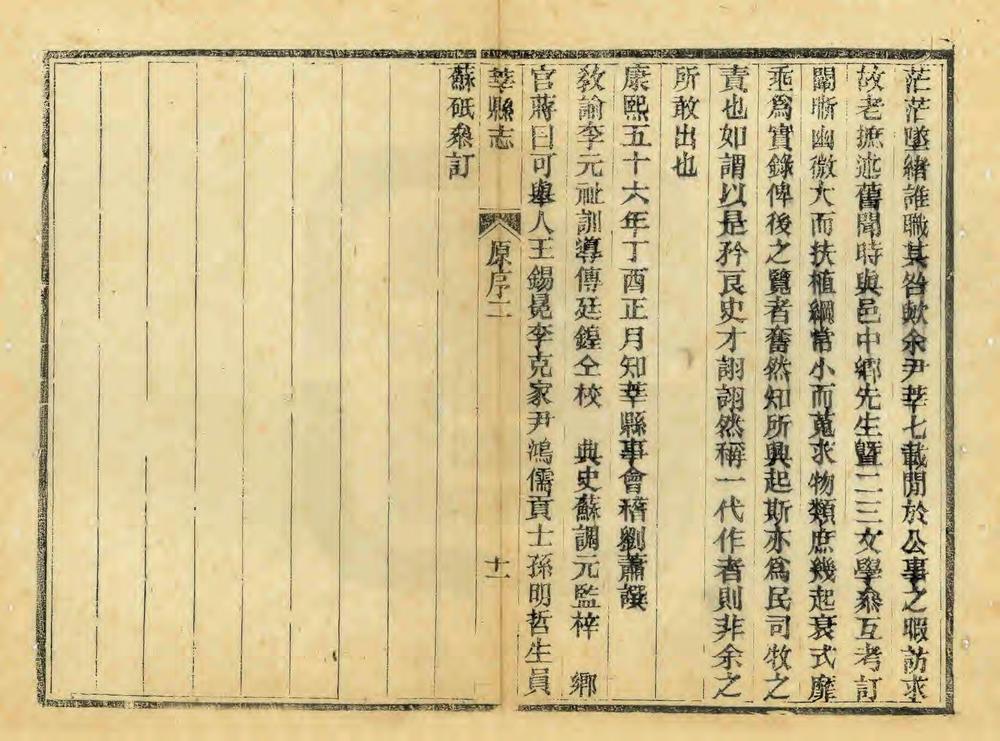 茫茫墜緒誰職其咎歟余尹莘七載閒於公事之暇訪求
故老摭逸舊聞時與邑中鄉先生暨二三文學叅互考訂
闡晰幽微大而扶植綱常小而蒐求物類庶幾起衰式靡
乖爲實錄俾後之覽者奮然知所興起斯亦爲民司牧之
責也如謂以是矜良史才詡詡然稱一代作者則非余之
所敢出也
康熙五十六年丁酉正月知莘縣事會稽劉蕭譔
敎諭李元祉訓導傅廷鍠仝校　典史蘇調元監梓　鄉
官蔣曰可舉人王錫冕李克家尹鴻儒貢士孫明哲生員
莘縣志　原序二　十一
蘇砥叅訂